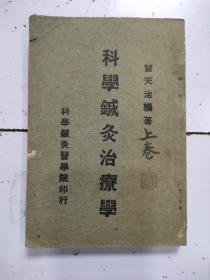 曾天治編著
上卷
科學鍼灸治療學
科學鍼灸醫學院印行